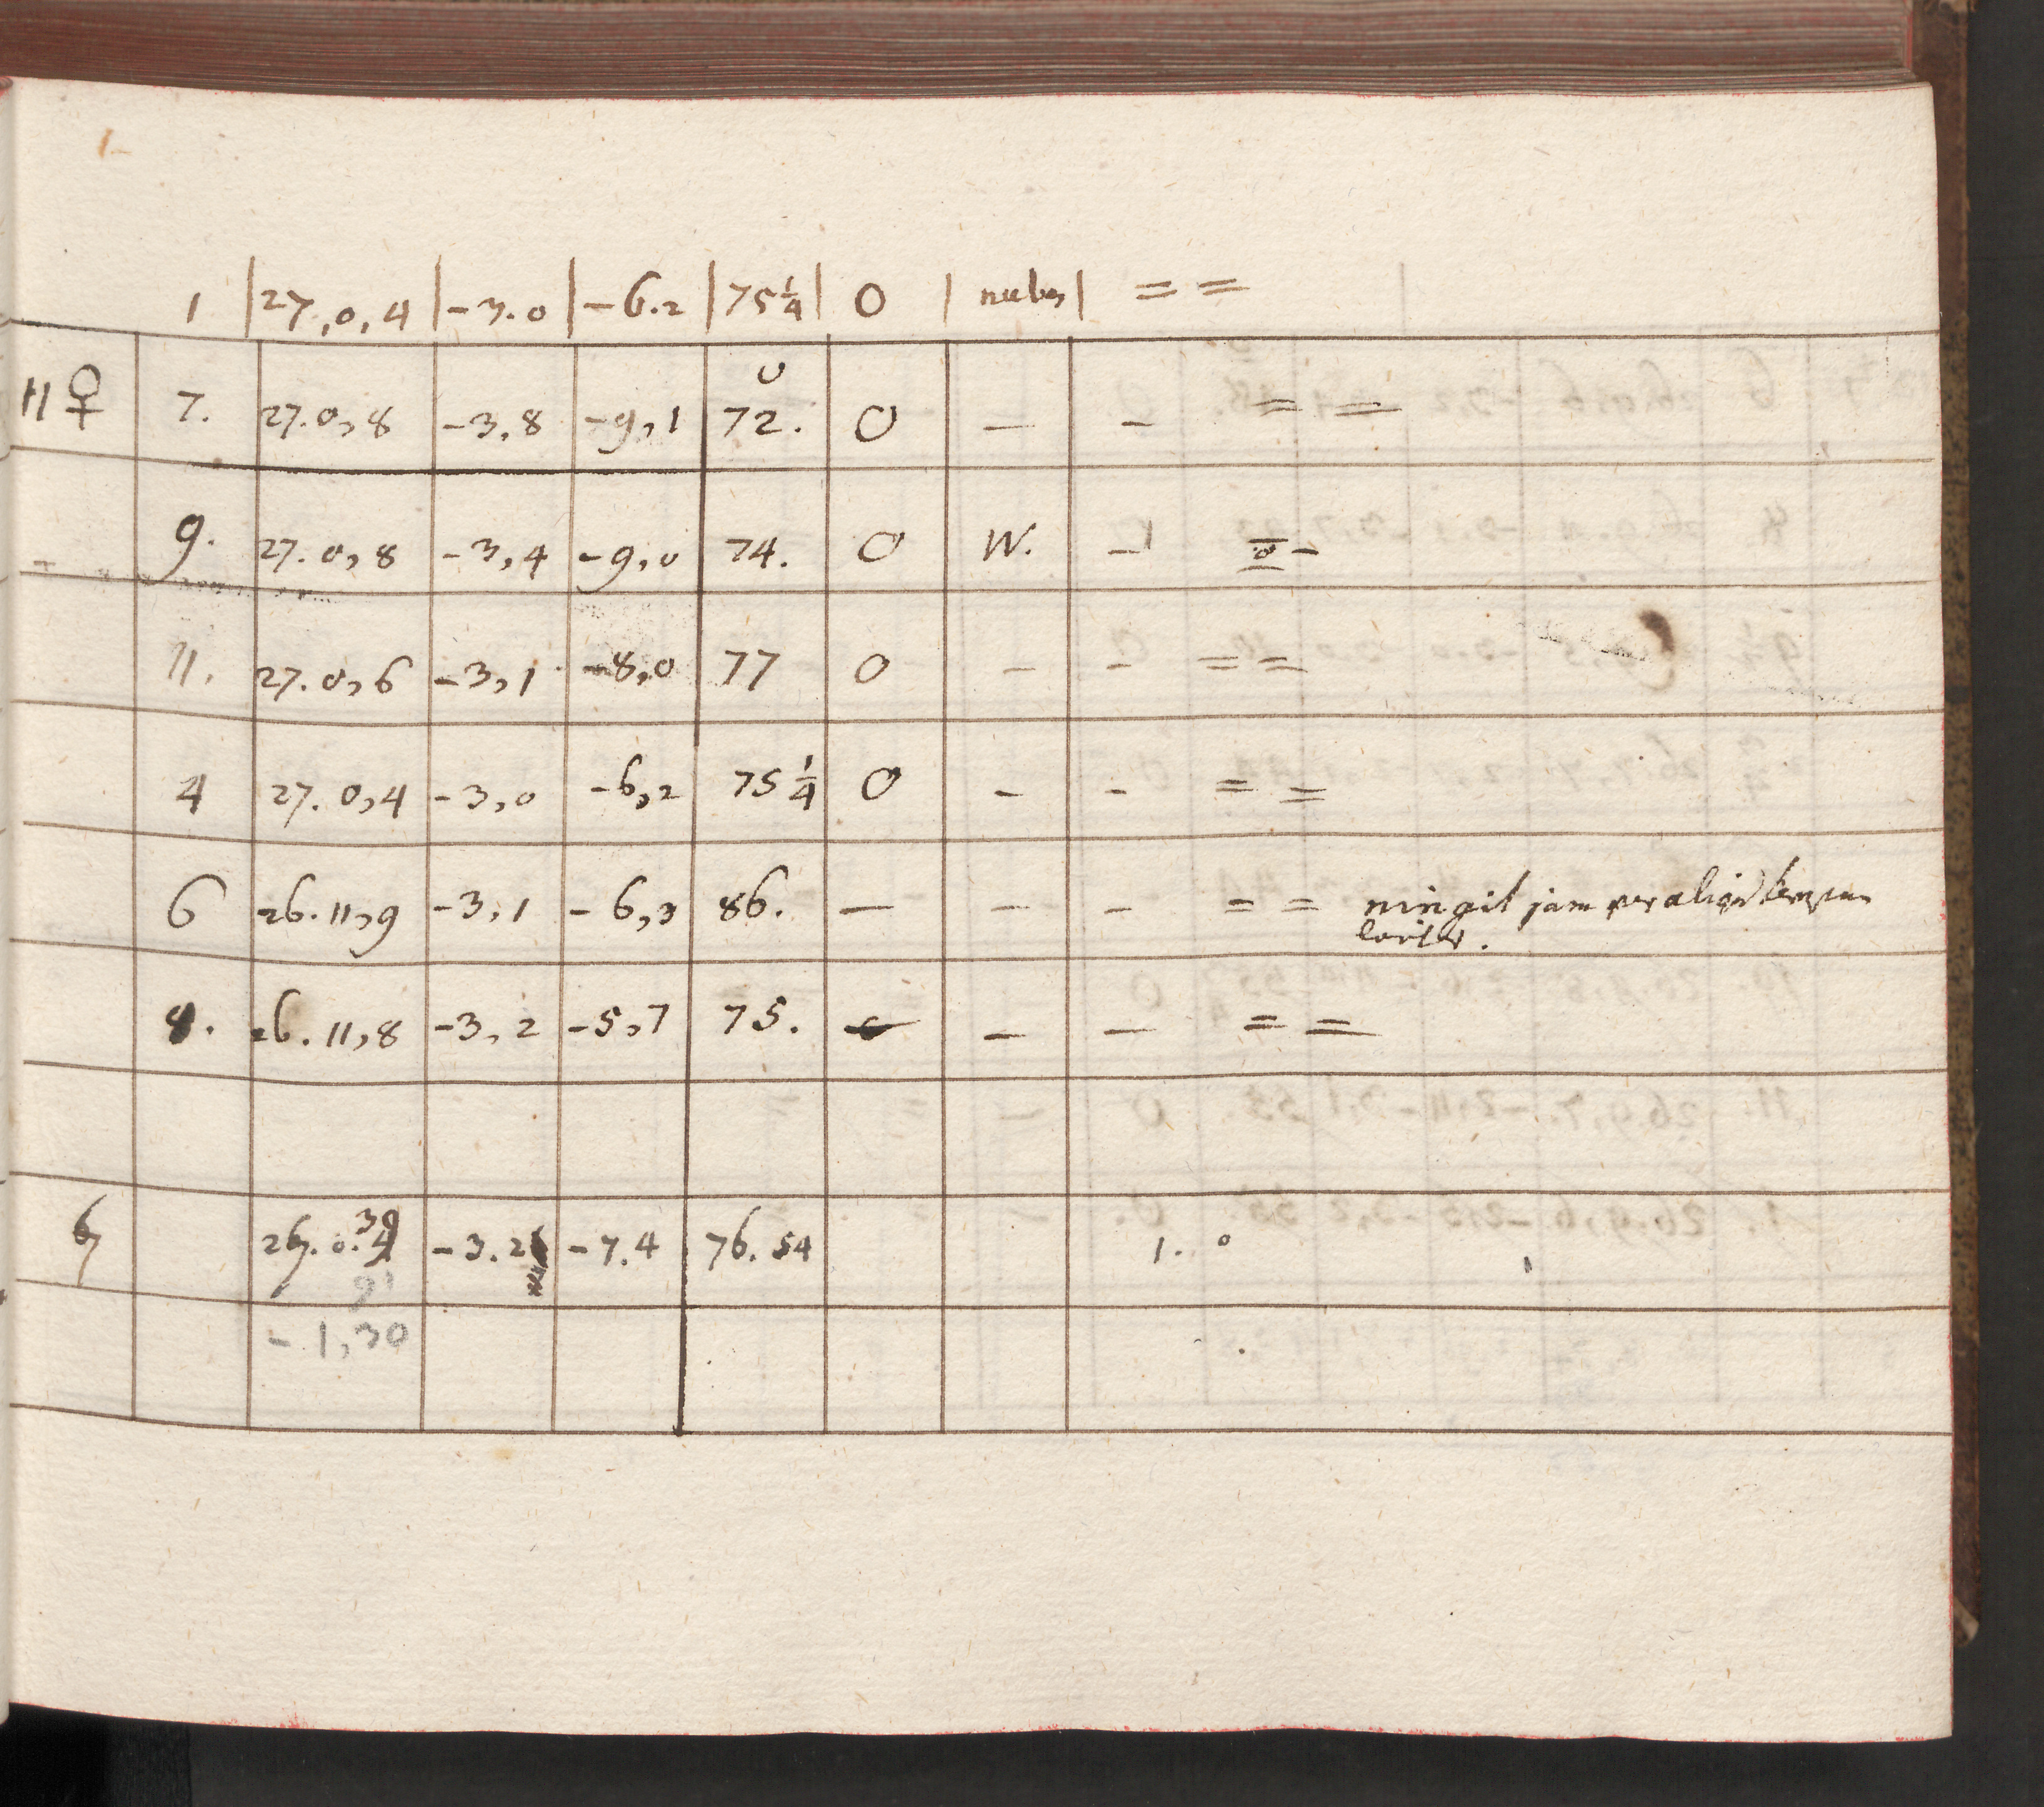 1 | 27,0,4 | -3.0 | -6.2 | 75¼ | 0 | nubes | = =
11 ♀ 7. 27.0,8 -3,8 -9,1 72. 0 — - = =
9. 27.0,8 -3,4 -9,0 74. 0 W. -1
11. 27.0,6 -3,1 -8,0 77 0 - - = =
4 27.0,4 -3,0 -6,2 75¼ 0 - - = =
6 26.11,9 -3,1 -6,3 86. — - - = = ningit jam per aliquod tempus
leviter.
8. 26.11,8 -3,2 -5,7 75. — — = =
-3.2 -7.4 76.54 1. 0
- 1,30